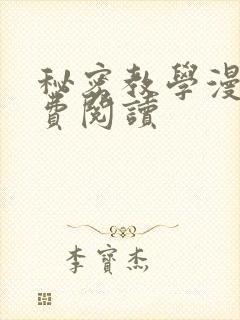 秘密教學漫
費閱讀
李寶杰